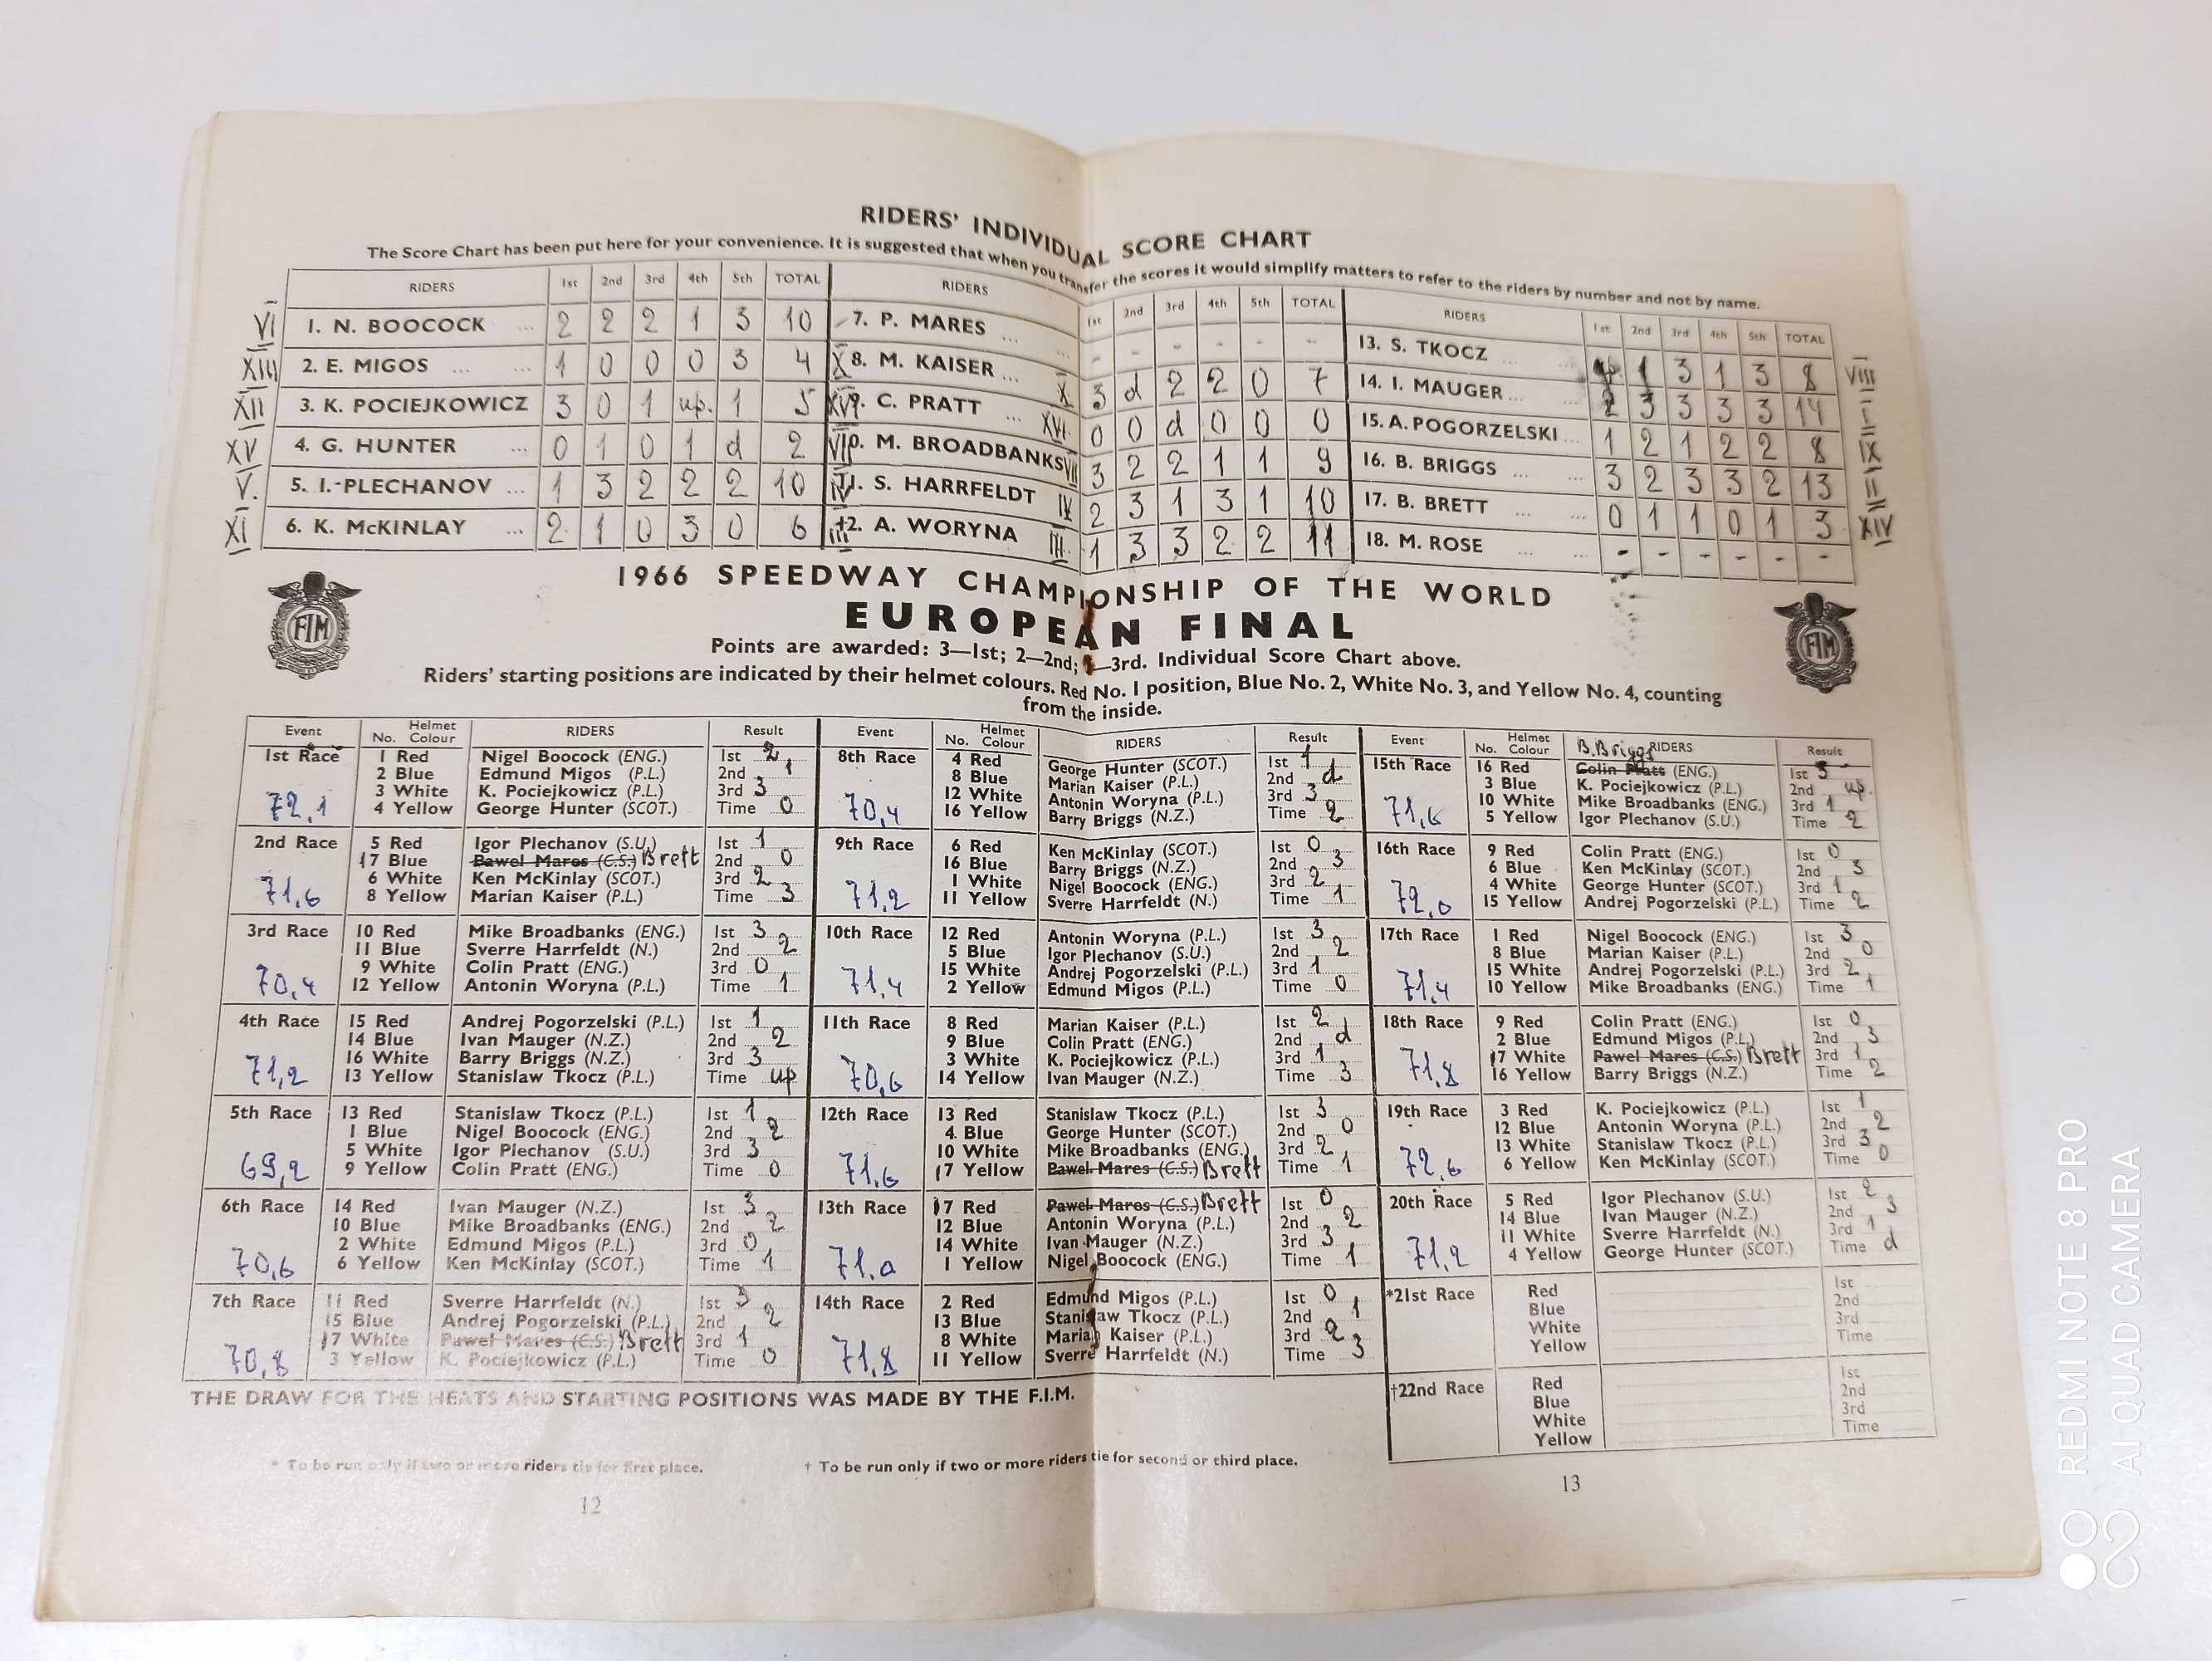 RIDERS' INDIVIDUAL SCORE CHART
The Score Chart has been put here for your convenience. It is suggested that when you transfer the scores it would simplify matters to refer to the riders by number and not by name.
RIDERS 1st 2nd 3rd 4th 5th TOTAL
VI 1. N. BOOCOCK ... 2 2 2 1 3 10
XIII 2. E. MIGOS ... ... 1 0 0 0 3 4
XII 3. K. POCIEJKOWICZ 3 0 1 up. 1 5
XV 4. G. HUNTER ... 0 1 0 1 d 2
V. 5. I.-PLECHANOV ... 1 3 2 2 2 10
XI 6. K. McKINLAY ... 2 1 0 3 0 6
RIDERS 1st 2nd 3rd 4th 5th TOTAL
7. P. MARES ... ... - - - - - -
X 8. M. KAISER ... X 3 d 2 2 0 7
XVI 9. C. PRATT ... XVI 0 0 d 0 0 0
VII 10. M. BROADBANKS VII 3 2 2 1 1 9
IV 11. S. HARRFELDT IV 2 3 1 3 1 10
III 12. A. WORYNA III 1 3 3 2 2 11
RIDERS 1st 2nd 3rd 4th 5th TOTAL
13. S. TKOCZ ... ... up 1 3 1 3 8 VIII
14. I. MAUGER ... ... 2 3 3 3 3 14 I
15. A. POGORZELSKI ... 1 2 1 2 2 8 IX
16. B. BRIGGS ... ... 3 2 3 3 2 13 II
17. B. BRETT ... ... 0 1 1 0 1 3 XIV
18. M. ROSE ... ... - - - - - -
1966 SPEEDWAY CHAMPIONSHIP OF THE WORLD
FIM
EUROPEAN FINAL
FIM
Points are awarded: 3—1st; 2—2nd; —3rd. Individual Score Chart above.
Riders' starting positions are indicated by their helmet colours. Red No. 1 position, Blue No. 2, White No. 3, and Yellow No. 4, counting
from the inside.
Event No. Helmet Colour RIDERS Result
1st Race 1 Red Nigel Boocock (ENG.) 1st 2
2 Blue Edmund Migos (P.L.) 2nd 1
3 White K. Pociejkowicz (P.L.) 3rd 3
72,1 4 Yellow George Hunter (SCOT.) Time 0
2nd Race 5 Red Igor Plechanov (S.U.) 1st 1
17 Blue Pawel Mares (C.S.) Brett 2nd 0
6 White Ken McKinlay (SCOT.) 3rd 2
71,6 8 Yellow Marian Kaiser (P.L.) Time 3
3rd Race 10 Red Mike Broadbanks (ENG.) 1st 3
11 Blue Sverre Harrfeldt (N.) 2nd 2
9 White Colin Pratt (ENG.) 3rd 0
70,4 12 Yellow Antonin Woryna (P.L.) Time 1
4th Race 15 Red Andrej Pogorzelski (P.L.) 1st 1
14 Blue Ivan Mauger (N.Z.) 2nd 2
16 White Barry Briggs (N.Z.) 3rd 3
71,2 13 Yellow Stanislaw Tkocz (P.L.) Time up
5th Race 13 Red Stanislaw Tkocz (P.L.) 1st 1
1 Blue Nigel Boocock (ENG.) 2nd 2
5 White Igor Plechanov (S.U.) 3rd 3
69,2 9 Yellow Colin Pratt (ENG.) Time 0
6th Race 14 Red Ivan Mauger (N.Z.) 1st 3
10 Blue Mike Broadbanks (ENG.) 2nd 2
2 White Edmund Migos (P.L.) 3rd 0
70,6 6 Yellow Ken McKinlay (SCOT.) Time 1
7th Race 11 Red Sverre Harrfeldt (N.) 1st 3
15 Blue Andrej Pogorzelski (P.L.) 2nd 2
17 White Pawel Mares (C.S.) Brett 3rd 1
70,8 3 Yellow K. Pociejkowicz (P.L.) Time 0
Event No. Helmet Colour RIDERS Result
8th Race 4 Red George Hunter (SCOT.) 1st 1
8 Blue Marian Kaiser (P.L.) 2nd d
12 White Antonin Woryna (P.L.) 3rd 3
70,4 16 Yellow Barry Briggs (N.Z.) Time 2
9th Race 6 Red Ken McKinlay (SCOT.) 1st 0
16 Blue Barry Briggs (N.Z.) 2nd 3
1 White Nigel Boocock (ENG.) 3rd 2
71,2 11 Yellow Sverre Harrfeldt (N.) Time 1
10th Race 12 Red Antonin Woryna (P.L.) 1st 3
5 Blue Igor Plechanov (S.U.) 2nd 2
15 White Andrej Pogorzelski (P.L.) 3rd 1
71,4 2 Yellow Edmund Migos (P.L.) Time 0
11th Race 8 Red Marian Kaiser (P.L.) 1st 2
9 Blue Colin Pratt (ENG.) 2nd d
3 White K. Pociejkowicz (P.L.) 3rd 1
70,6 14 Yellow Ivan Mauger (N.Z.) Time 3
12th Race 13 Red Stanislaw Tkocz (P.L.) 1st 3
4 Blue George Hunter (SCOT.) 2nd 0
10 White Mike Broadbanks (ENG.) 3rd 2
71,6 17 Yellow Pawel Mares (C.S.) Brett Time 1
13th Race 17 Red Pawel Mares (C.S.) Brett 1st 0
12 Blue Antonin Woryna (P.L.) 2nd 2
14 White Ivan Mauger (N.Z.) 3rd 3
71,0 1 Yellow Nigel Boocock (ENG.) Time 1
14th Race 2 Red Edmund Migos (P.L.) 1st 0
13 Blue Stanislaw Tkocz (P.L.) 2nd 1
8 White Marian Kaiser (P.L.) 3rd 2
71,8 11 Yellow Sverre Harrfeldt (N.) Time 3
Event No. Helmet Colour B. Briggs RIDERS Result
15th Race 16 Red Colin Pratt (ENG.) 1st 3
3 Blue K. Pociejkowicz (P.L.) 2nd up.
10 White Mike Broadbanks (ENG.) 3rd 1
71,6 5 Yellow Igor Plechanov (S.U.) Time 2
16th Race 9 Red Colin Pratt (ENG.) 1st 0
6 Blue Ken McKinlay (SCOT.) 2nd 3
4 White George Hunter (SCOT.) 3rd 1
72,0 15 Yellow Andrej Pogorzelski (P.L.) Time 2
17th Race 1 Red Nigel Boocock (ENG.) 1st 3
8 Blue Marian Kaiser (P.L.) 2nd 0
15 White Andrej Pogorzelski (P.L.) 3rd 2
71,4 10 Yellow Mike Broadbanks (ENG.) Time 1
18th Race 9 Red Colin Pratt (ENG.) 1st 0
2 Blue Edmund Migos (P.L.) 2nd 3
17 White Pawel Mares (C.S.) Brett 3rd 1
71,8 16 Yellow Barry Briggs (N.Z.) Time 2
19th Race 3 Red K. Pociejkowicz (P.L.) 1st 1
12 Blue Antonin Woryna (P.L.) 2nd 2
13 White Stanislaw Tkocz (P.L.) 3rd 3
72,6 6 Yellow Ken McKinlay (SCOT.) Time 0
20th Race 5 Red Igor Plechanov (S.U.) 1st 2
14 Blue Ivan Mauger (N.Z.) 2nd 3
11 White Sverre Harrfeldt (N.) 3rd 1
71,2 4 Yellow George Hunter (SCOT.) Time d
*21st Race Red 1st
Blue 2nd
White 3rd
Yellow Time
†22nd Race Red 1st
Blue 2nd
White 3rd
Yellow Time
THE DRAW FOR THE HEATS AND STARTING POSITIONS WAS MADE BY THE F.I.M.
* To be run only if two or more riders tie for first place.
† To be run only if two or more riders tie for second or third place.
12
13
REDMI NOTE 8 PRO
AI QUAD CAMERA